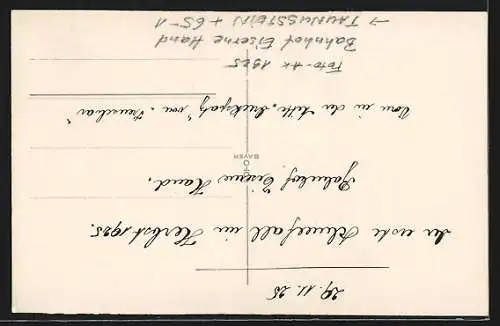 29. 11. 25
der erste Schneefall im Herbst 1925.
Bahnhof Eiserne Hand.
Vorn in der Mitte „Dreckspatz" von
Foto-AK 1925
Bahnhof Eiserne Hand
→ TAUNUSSTEIN + 65-1
BAYER